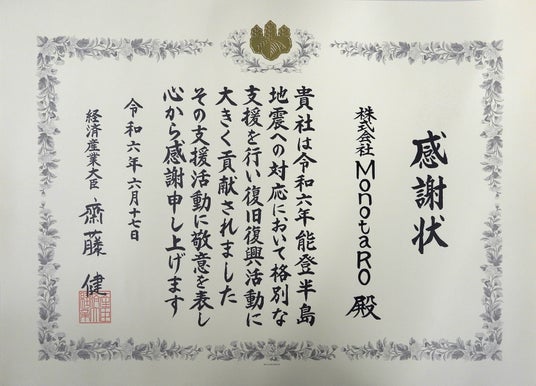 感謝状
株式会社MonotaRO 殿
貴社は令和六年能登半島
地震への対応において格別な
支援を行い復旧復興活動に
大きく貢献されました
その支援活動に敬意を表し
心から感謝申し上げます
令和六年六月十七日
経済産業大臣 齋藤 健